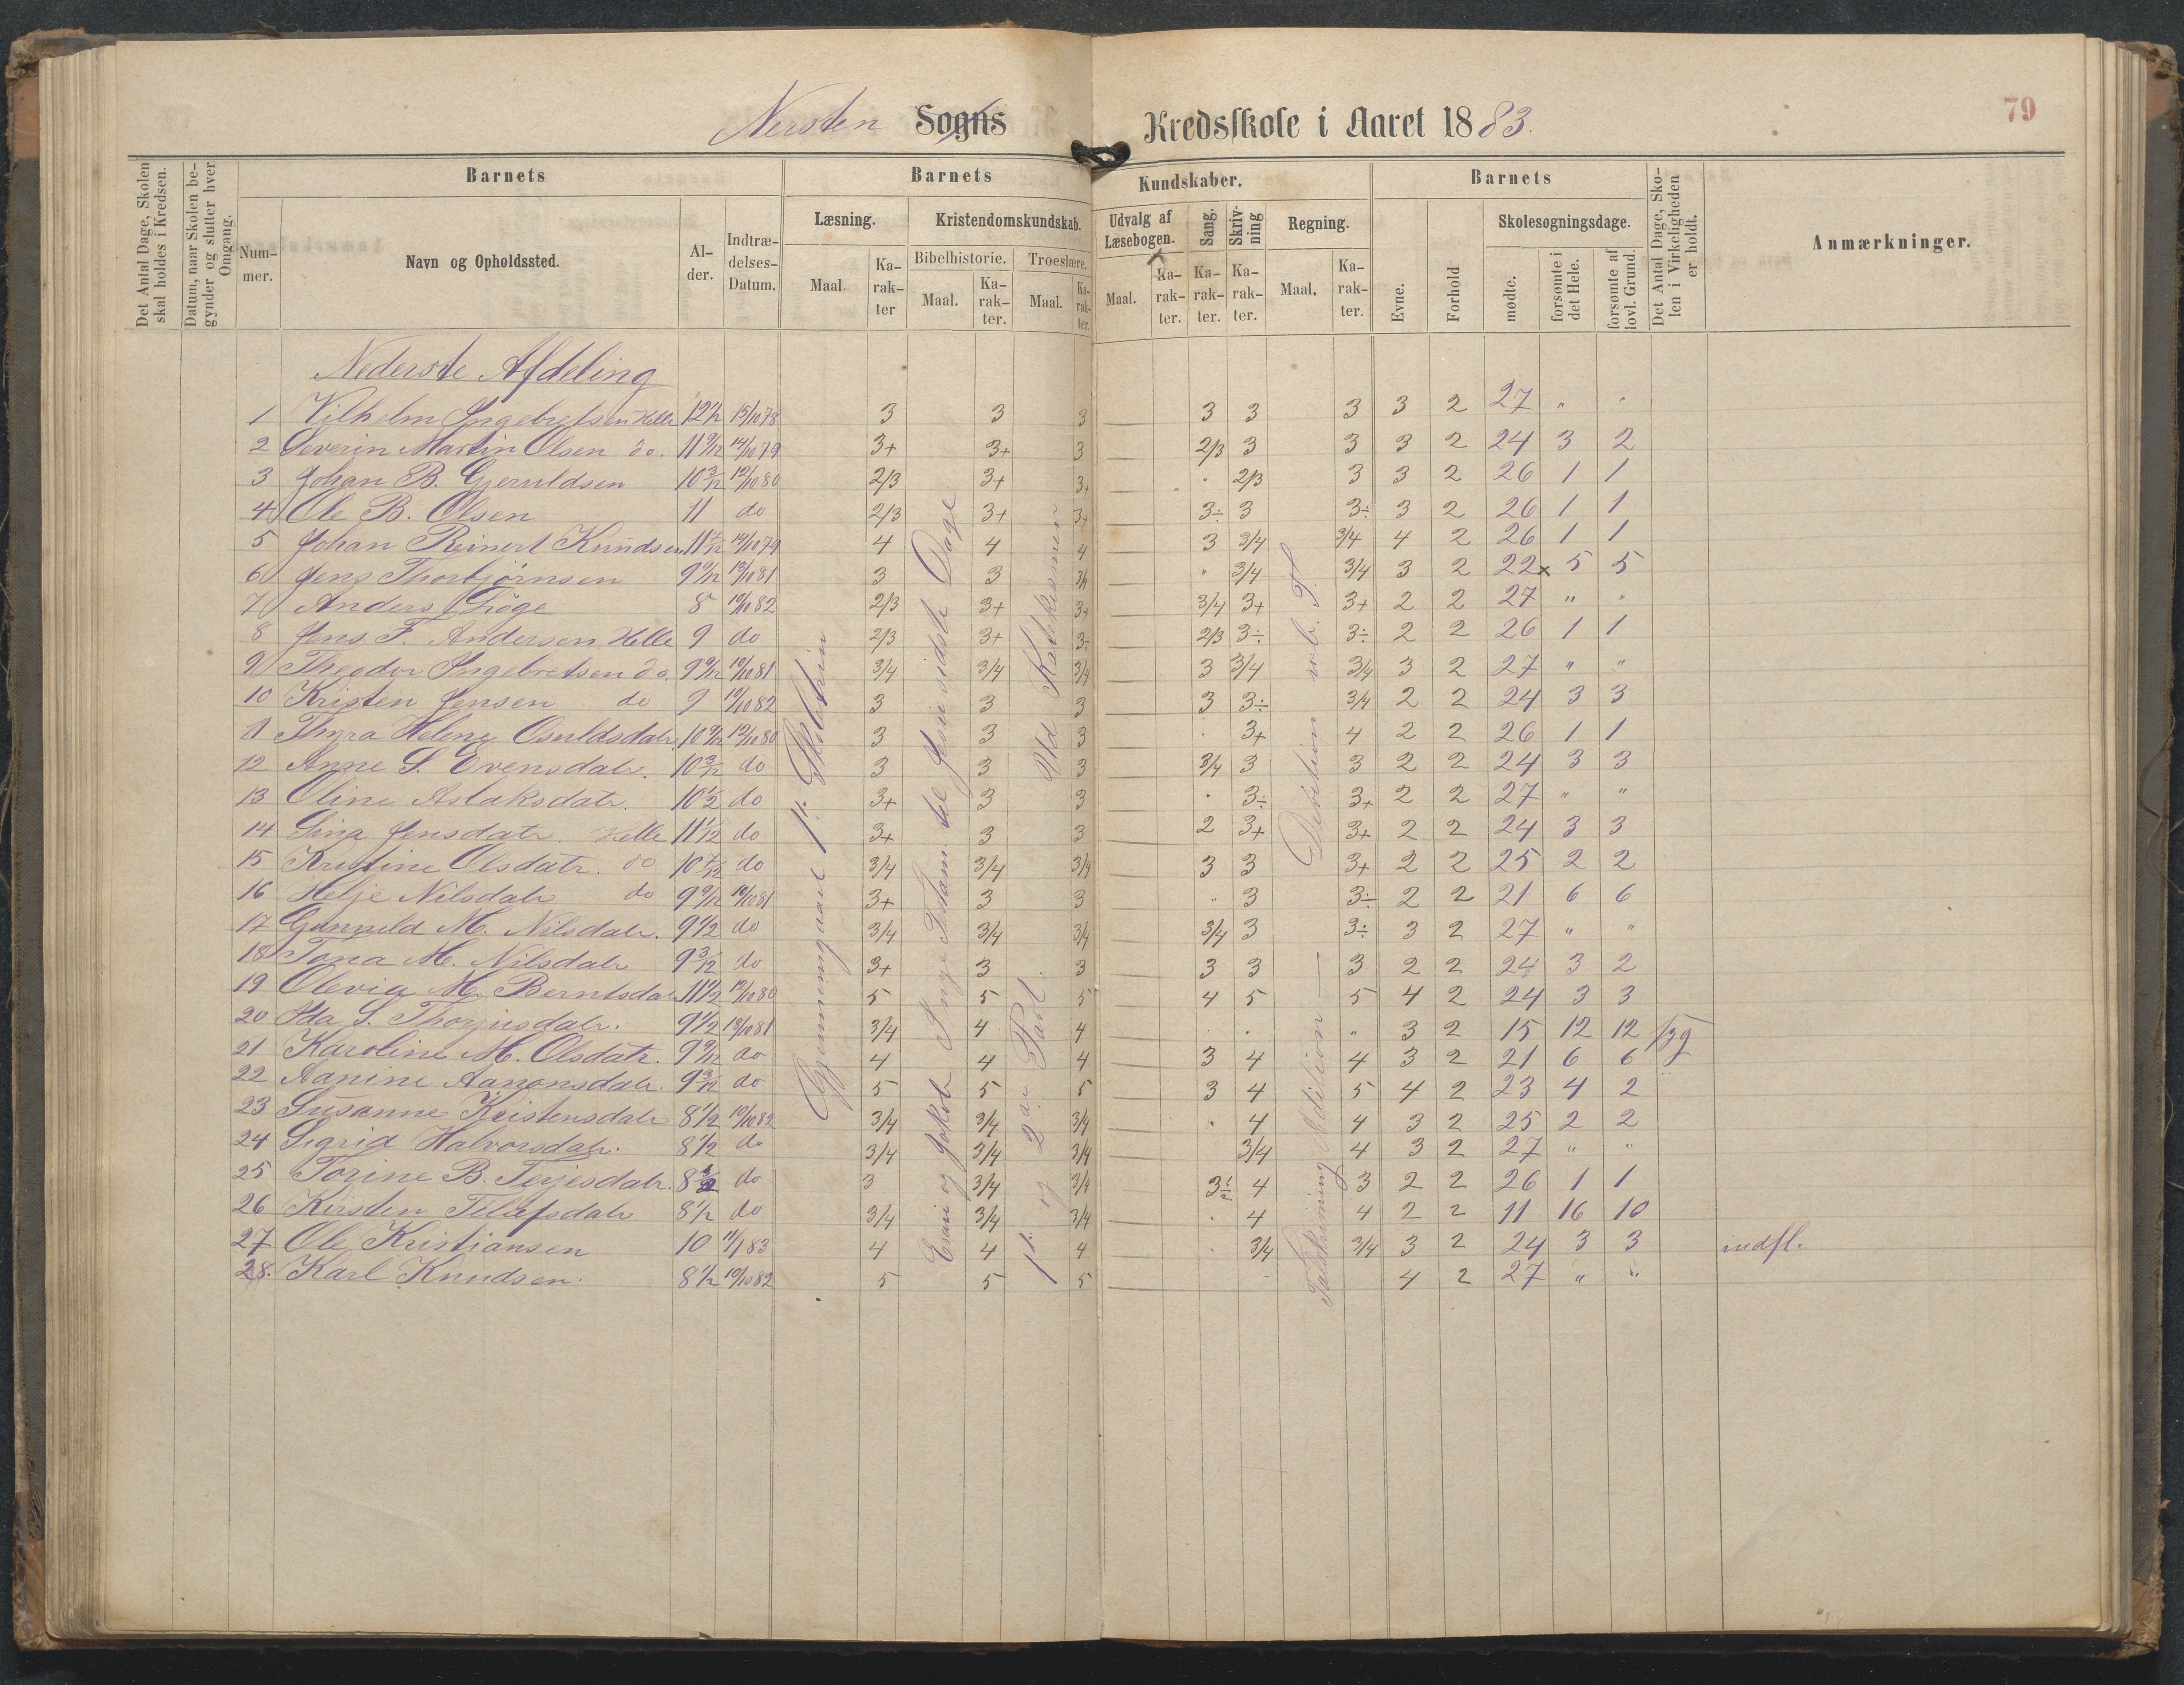 Nersten Sogns Kredsskole i Aaret 1883.
79
Det Antal Dage, Skolen skal holdes i Kredsen.
Datum, naar Skolen begynder og slutter hver Omgang.
Barnets
Nummer.
Navn og Opholdssted.
Alder.
Indtrædelses-Datum.
Barnets Kundskaber.
Læsning.
Maal.
Karakter
Kristendomskundskab.
Bibelhistorie.
Maal.
Karakter.
Troeslære.
Maal.
Karakter.
Udvalg af Læsebogen.
Maal.
Karakter.
Sang.
Karakter.
Skrivning
Karakter.
Regning.
Maal.
Karakter.
Barnets
Evne.
Forhold
Skolesøgningsdage.
mødte.
forsømte i det Hele.
forsømte af lovl. Grund.
Det Antal Dage, Skolen i Virkeligheden er holdt.
Anmærkninger.
Nederste Afdeling
1 Vilhelm Ingebretsen Helle 12 1/2 15/10 78 3 3 3 3 3 3 3 2 27 " "
2 Severin Martin Olsen do. 11 9/12 14/10 79 3+ 3+ 3 2/3 3 3 3 2 24 3 2
3 Johan B. Gjeruldsen 10 3/12 12/10 80 2/3 3+ 3+ " 2/3 3 3 2 26 1 1
4 Ole B. Olsen 11 do 2/3 3+ 3+ 3÷ 3 3÷ 3 2 26 1 1
5 Johan Reinert Knudsen 4 4 4 3 3/4 3/4 4 2 26 1 1
6 Jens Thorbjørnsen 9 9/12 3 3 " 3/4 3/4 3 2 22x 5 5
7 Anders 8 10/10 82 2/3 3+ 3+ 3/4 3+ 3+ 2 2 27 " "
8 Jens F. Andersen Helle 9 do 2/3 3+ 3÷ 2/3 3÷ 3÷ 2 2 26 1 1
9 Theodor Ingebretsen do. 9 9/12 10/10 81 3/4 3/4 3/4 3 3/4 3/4 3 2 27 " "
10 Kristen Jensen do 9 10/10 82 3 3 3 3 3÷ 3/4 2 2 24 3 3
11 Thyra Helene Osuldsdatr. 10 9/12 12/10 80 3 3 3 " 3+ 4 2 2 26 1 1
12 Anne S. Evensdatr. 10 3/12 do 3 3 3 3/4 3 3 2 2 24 3 3
13 Oline Aslaksdatr. 10 1/2 do 3+ 3 3 " 3÷ 3+ 2 2 27 " "
14 Sina Jensdatr Helle 11 1/12 do 3+ 3 3 2 3+ 3+ 2 2 24 3 3
15 Kristine Olsdatr. do 10 7/12 do 3/4 3/4 3/4 3 3 3+ 2 2 25 2 2
16 Helje Nilsdatr do 9 9/12 10/10 81 3+ 3 3 " 3 3÷ 2 2 21 6 6
17 Gunnuld M. Nilsdatr. 9 1/2 do 3/4 3/4 3/4 3/4 3 3÷ 3 2 27 " "
18 Tona M. Nilsdatr 9 3/12 do 3+ 3 3 3 3 3 2 2 24 3 2
19 Olevia M. Berntsdatr 11 1/2 12/10 80 5 5 5 4 5 5 4 2 24 3 3
20 Ida S. 9 1/2 3/4 4 4 " " " 3 2 15 12 12 syg
21 Karoline M. Olsdatr. 9 9/12 do 4 4 4 3 4 4 3 2 21 6 6
22 Aanine Aanonsdatr. 9 3/12 do 5 5 5 3 4 5 4 2 23 4 2
23 Susanne Kristensdatr 8 1/2 10/10 82 3/4 3/4 3/4 " 4 4 3 2 25 2 2
24 Sigrid Halvorsdatr. 8 1/2 do 3/4 3/4 3/4 3/4 4 3 2 27 " "
25 Torine B. Terjesdatr. do 3 3/4 3/4 4 3 2 2 26 1 1
26 Kirsten 8 1/2 do 3/4 3/4 3/4 " 4 4 2 2 11 16 10
27 Ole Kristiansen 10 11/1 83 4 4 4 " 3/4 3/4 3 2 24 3 3 indfl.
28. Karl Knudsen. 8 1/2 10/10 82 5 5 5 4 2 27 " "
Gjennemgaaet
Even og Jakob til Jesu sidste Dage
1ste og 2den Part.
Addition — m. b. T.